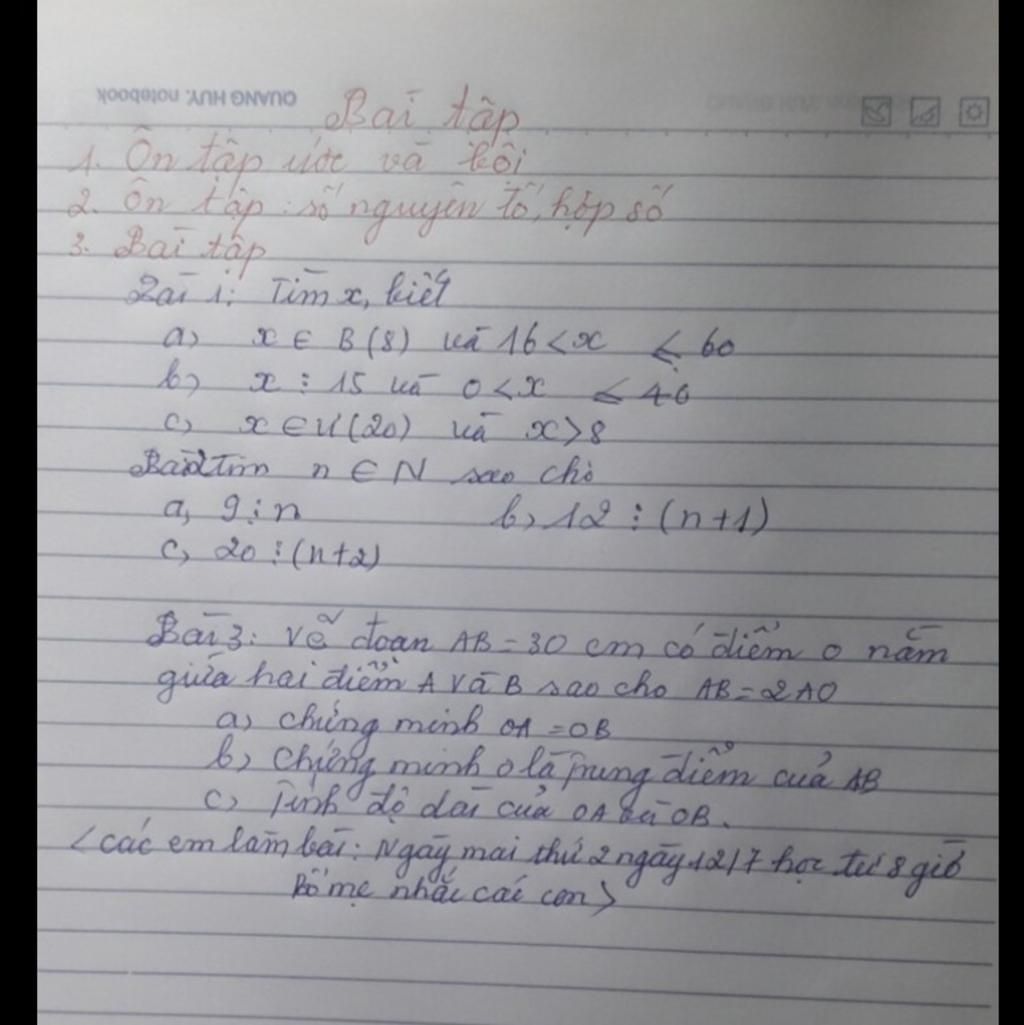 QUANG HUY. notebook
Bài tập
1. Ôn tập ước và bội
2. Ôn tập: số nguyên tố, hợp số
3. Bài tập
Bài 1: Tìm x, biết
a, x ∈ B(8) và 16 < x ≤ 60
b, x ⋮ 15 và 0 < x ≤ 40
c, x ∈ Ư(20) và x > 8
Bài 2 Tìm n ∈ N sao cho
a, 9 ⋮ n b, 12 ⋮ (n+1)
c, 20 ⋮ (n+2)
Bài 3: Vẽ đoạn AB = 30 cm có điểm O nằm
giữa hai điểm A và B sao cho AB = 2AO
a, Chứng minh OA = OB
b, Chứng minh O là trung điểm của AB
c, Tính độ dài của OA và OB.
<các em làm bài: Ngày mai thứ 2 ngày 12/7 học từ 8 giờ
Bố mẹ nhắc các con>